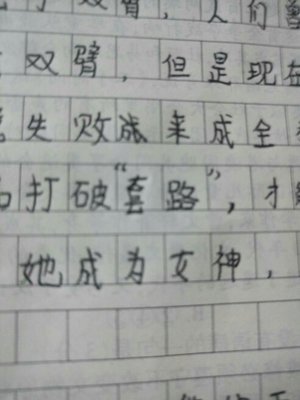 双臂，人们
双臂，但是现在
失败战来成全
打破“套路”，才
她成为女神，